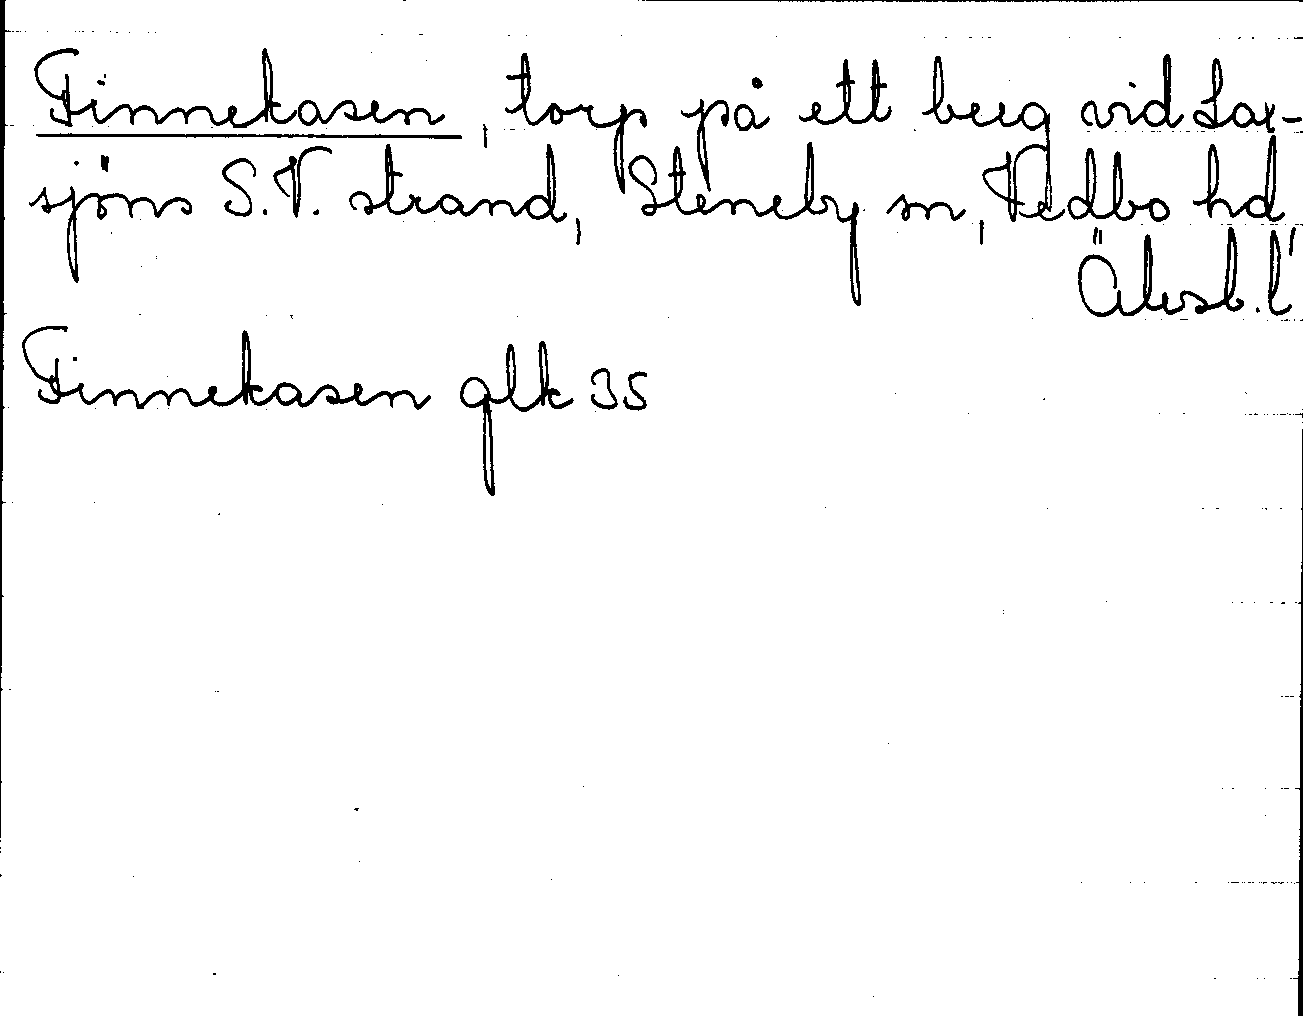 Finnekasen, torp på ett berg vid Lax-
sjöns S.V. strand, Steneby sn, Vedbo hd,
Älvsb. l
Finnekasen glk 35